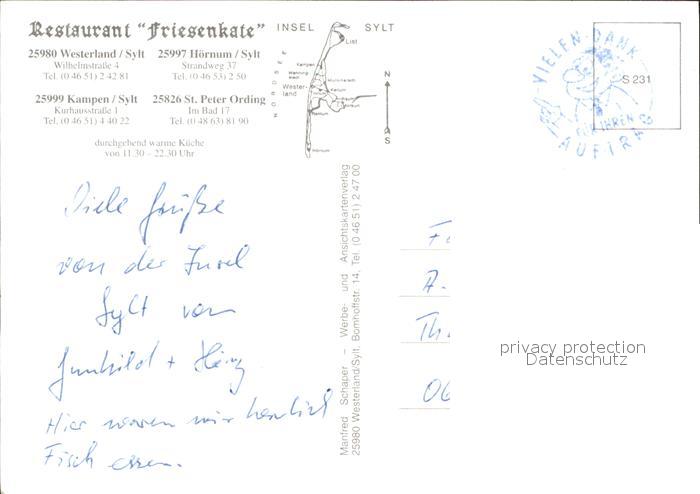 Restaurant "Friesenkate"
25980 Westerland / Sylt
Wilhelmstraße 4
Tel. (0 46 51) 2 42 81
25997 Hörnum / Sylt
Strandweg 37
Tel. (0 46 53) 2 50
25999 Kampen / Sylt
Kurhausstraße 1
Tel. (0 46 51) 4 40 22
25826 St. Peter Ording
Im Bad 17
Tel. (0 48 63) 81 90
durchgehend warme Küche
von 11.30 – 22.30 Uhr
INSEL SYLT
NORDSEE
List
Kampen
Wester-
land
Hörnum
N
S
VIELEN DANK
FÜR IHREN
AUFTRAG
S 231
Viele Grüße
von der Insel
Sylt von
Gunhild + Heinz
Hier waren wir herrlich
Fisch essen.
Manfred Schaper – Werbe- und Ansichtskartenverlag
25980 Westerland/Sylt, Bomhoffstr. 14, Tel. (0 46 51) 2 47 00
A.
Th.
06
privacy protection
Datenschutz